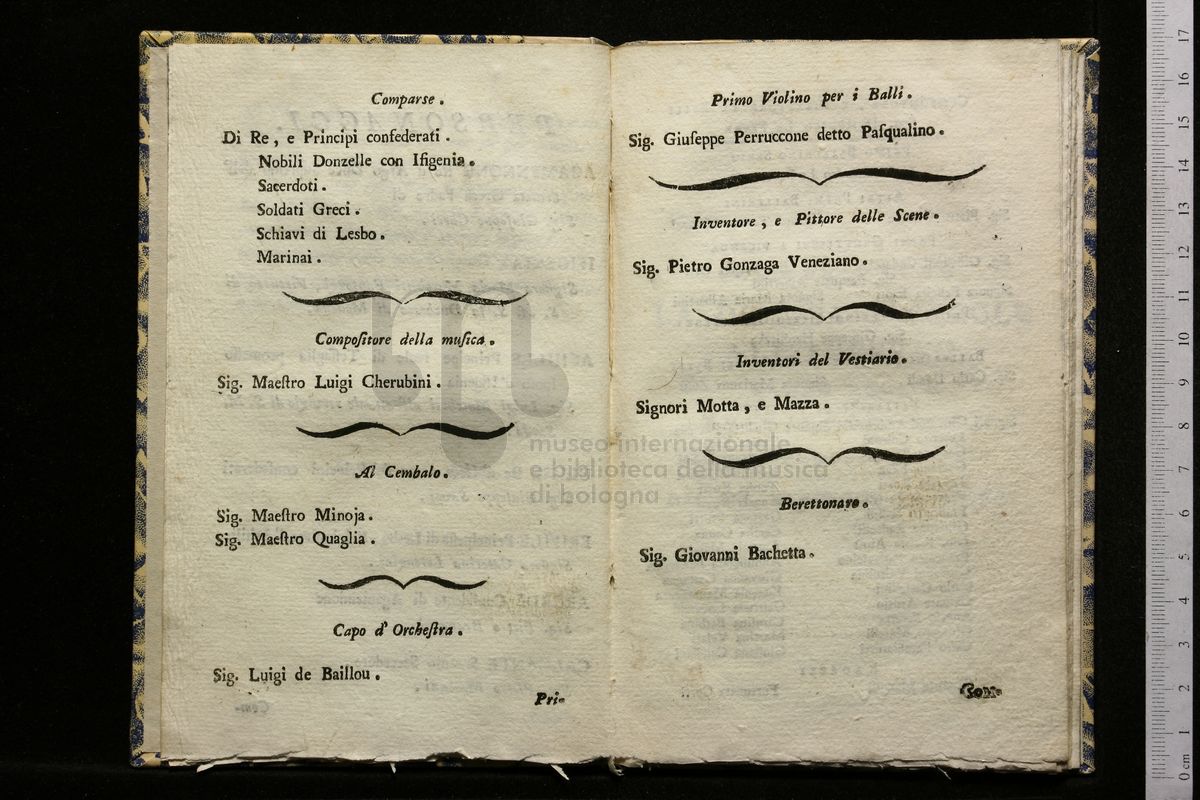 Comparse.
Di Re, e Principi confederati.
Nobili Donzelle con Ifigenia.
Sacerdoti.
Soldati Greci.
Schiavi di Lesbo.
Marinai.
Compoſitore della muſica.
Sig. Maeſtro Luigi Cherubini.
Al Cembalo.
Sig. Maeſtro Minoja.
Sig. Maeſtro Quaglia.
Capo d'Orcheſtra.
Sig. Luigi de Baillou.
Pri-
Primo Violino per i Balli.
Sig. Giuſeppe Perruccone detto Paſqualino.
Inventore, e Pittore delle Scene.
Sig. Pietro Gonzaga Veneziano.
Inventori del Vestiario.
Signori Motta, e Mazza.
Berettonaro.
Sig. Giovanni Bachetta.
museo internazionale
e biblioteca della musica
di bologna
17
16
15
14
13
12
11
10
9
8
7
6
5
4
3
2
1
0 cm